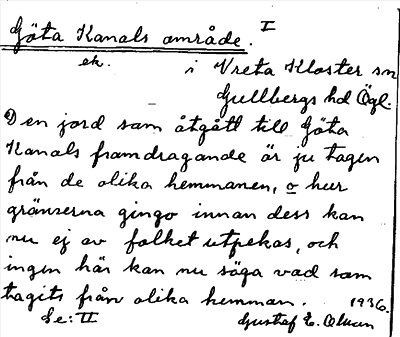 Göta Kanals område. I
ek. i Vreta Kloster sn
Gullbergs hd Ögl.
Den jord som åtgått till Göta
Kanals framdragande är ju tagen
från de olika hemmanen, o hur
gränserna gingo innan dess kan
nu ej av folket utpekas, och
ingen här kan nu säga vad som
tagits från olika hemman. 1936.
Se: II Gustaf E.